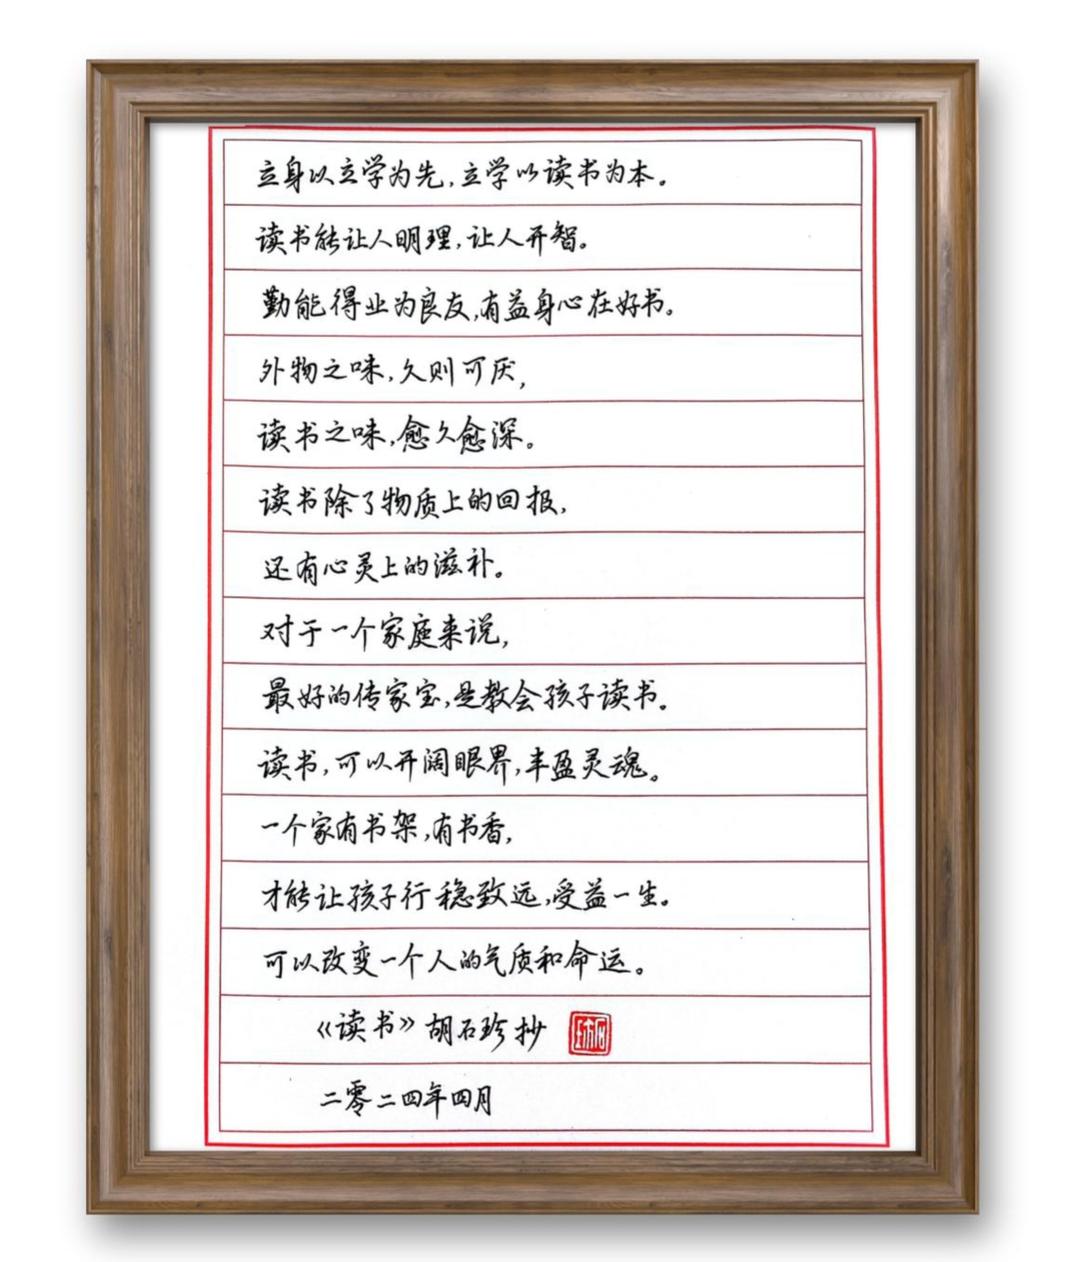 立身以立学为先,立学以读书为本。
读书能让人明理,让人开智。
勤能得业为良友,有益身心在好书。
外物之味,久则可厌,
读书之味,愈久愈深。
读书除了物质上的回报,
还有心灵上的滋补。
对于一个家庭来说,
最好的传家宝,是教会孩子读书。
读书,可以开阔眼界,丰盈灵魂。
一个家有书架,有书香,
才能让孩子行稳致远,受益一生。
可以改变一个人的气质和命运。
《读书》胡石珍抄
二零二四年四月